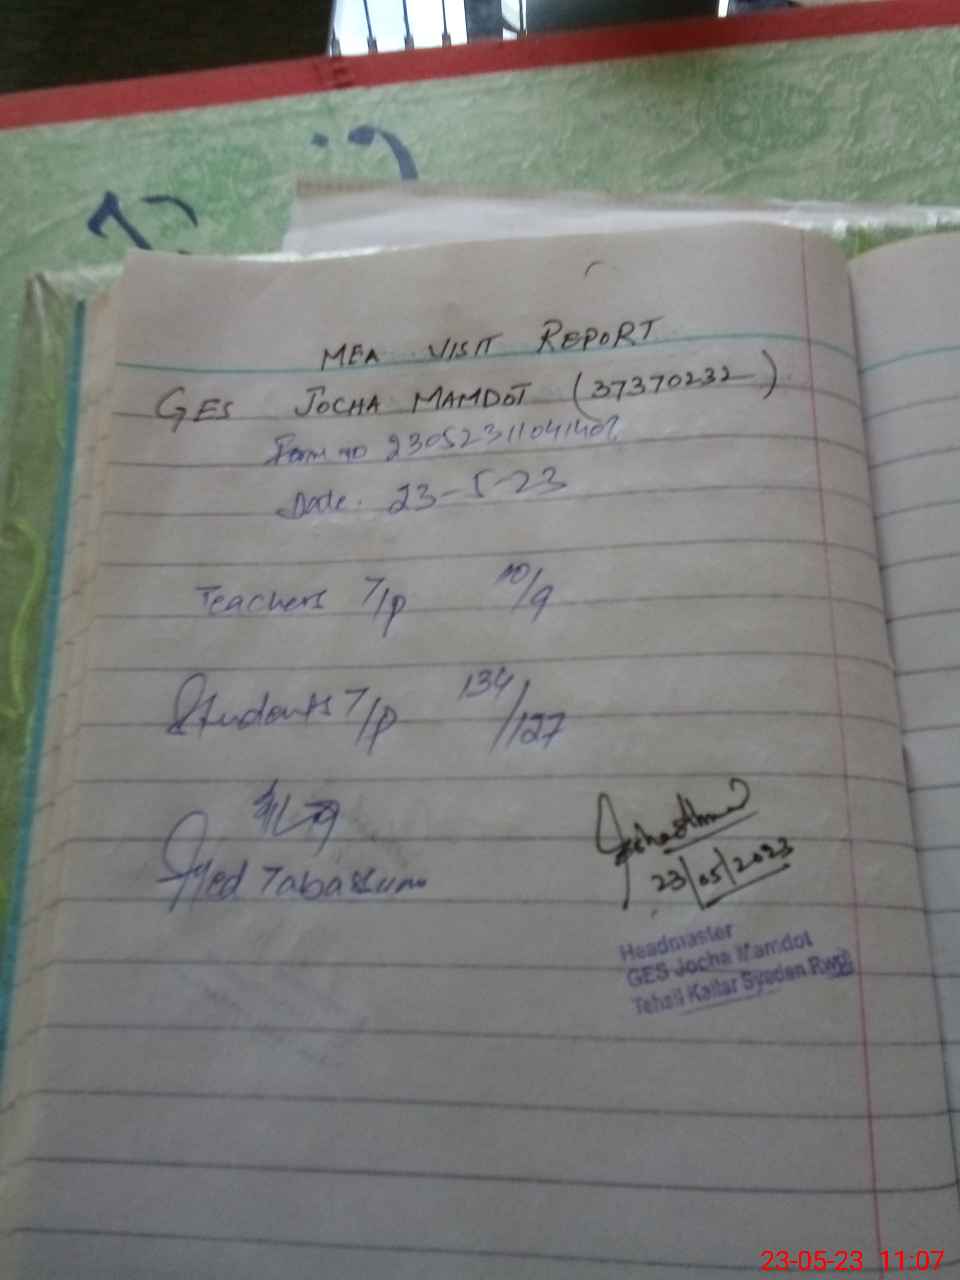 MEA VISIT REPORT
GES JOCHA MAMDOT (37370232)
Form no
Date. 23-5-23
Teachers T/p 10/9
Students T/p 134/127
Syed Tabassum
23/05/2023
Headmaster
GES Jocha Mamdot
Tehsil Kallar Syedan Rwp
23-05-23 11:07